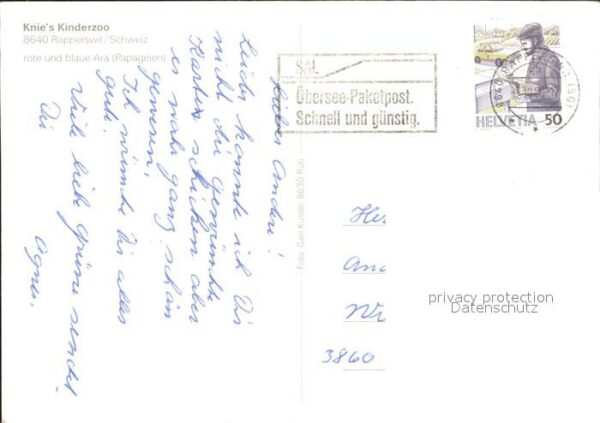 Knie's Kinderzoo
8640 Rapperswil/Schweiz
rote und blaue Ara (Papageien)
Lieber Andre!
Leider konnte ich Dir
nicht die gewünschte
Karten schicken aber
es wahr ganz schön
gewesen.
Ich wünsche Dir alles
gute.
Viele liebe Grüsse sendet
Dir
Agnes.
Übersee-Paketpost.
Schnell und günstig.
8640
HELVETIA 50
Foto: Geri Kuster, 8630 Rüti
He
And
Nr
3860
privacy protection
Datenschutz